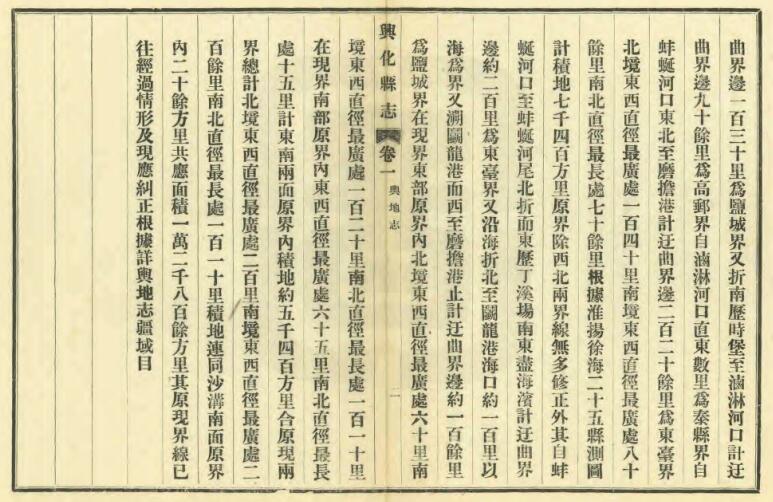 曲界邊一百三十里爲鹽城界又折南歷時堡至滷淋河口計迂
曲界邊九十餘里爲高郵界自滷淋河口直東數里爲泰縣界自
蚌蜒河口東北至磨擔港計迂曲界邊二百二十餘里爲東臺界
北境東西直徑最廣處一百四十里南境東西直徑最廣處八十
餘里南北直徑最長處七十餘里根據淮揚徐海二十五縣測圖
計積地七千四百方里原界除西北兩界線無多修正外其自蚌
蜒河口至蚌蜒河尾北折而東歷丁溪場而東盡海濱計迂曲界
邊約二百里爲東臺界又沿海折北至鬭龍港海口約一百里以
海爲界又溯鬭龍港而西至磨擔港止計迂曲界邊約一百餘里
爲鹽城界在現界東部原界內北境東西直徑最廣處六十里南
興化縣志 卷一 輿地志 一
境東西直徑最廣處一百二十里南北直徑最長處一百一十里
在現界南部原界內東西直徑最廣處六十五里南北直徑最長
處十五里計東南兩面原界內積地約五千四百方里合原現兩
界總計北境東西直徑最廣處二百里南境東西直徑最廣處二
百餘里南北直徑最長處一百一十里積地連同沙溝南面原界
內二十餘方里共應面積一萬二千八百餘方里其原現界線已
往經過情形及現應糾正根據詳輿地志疆域目